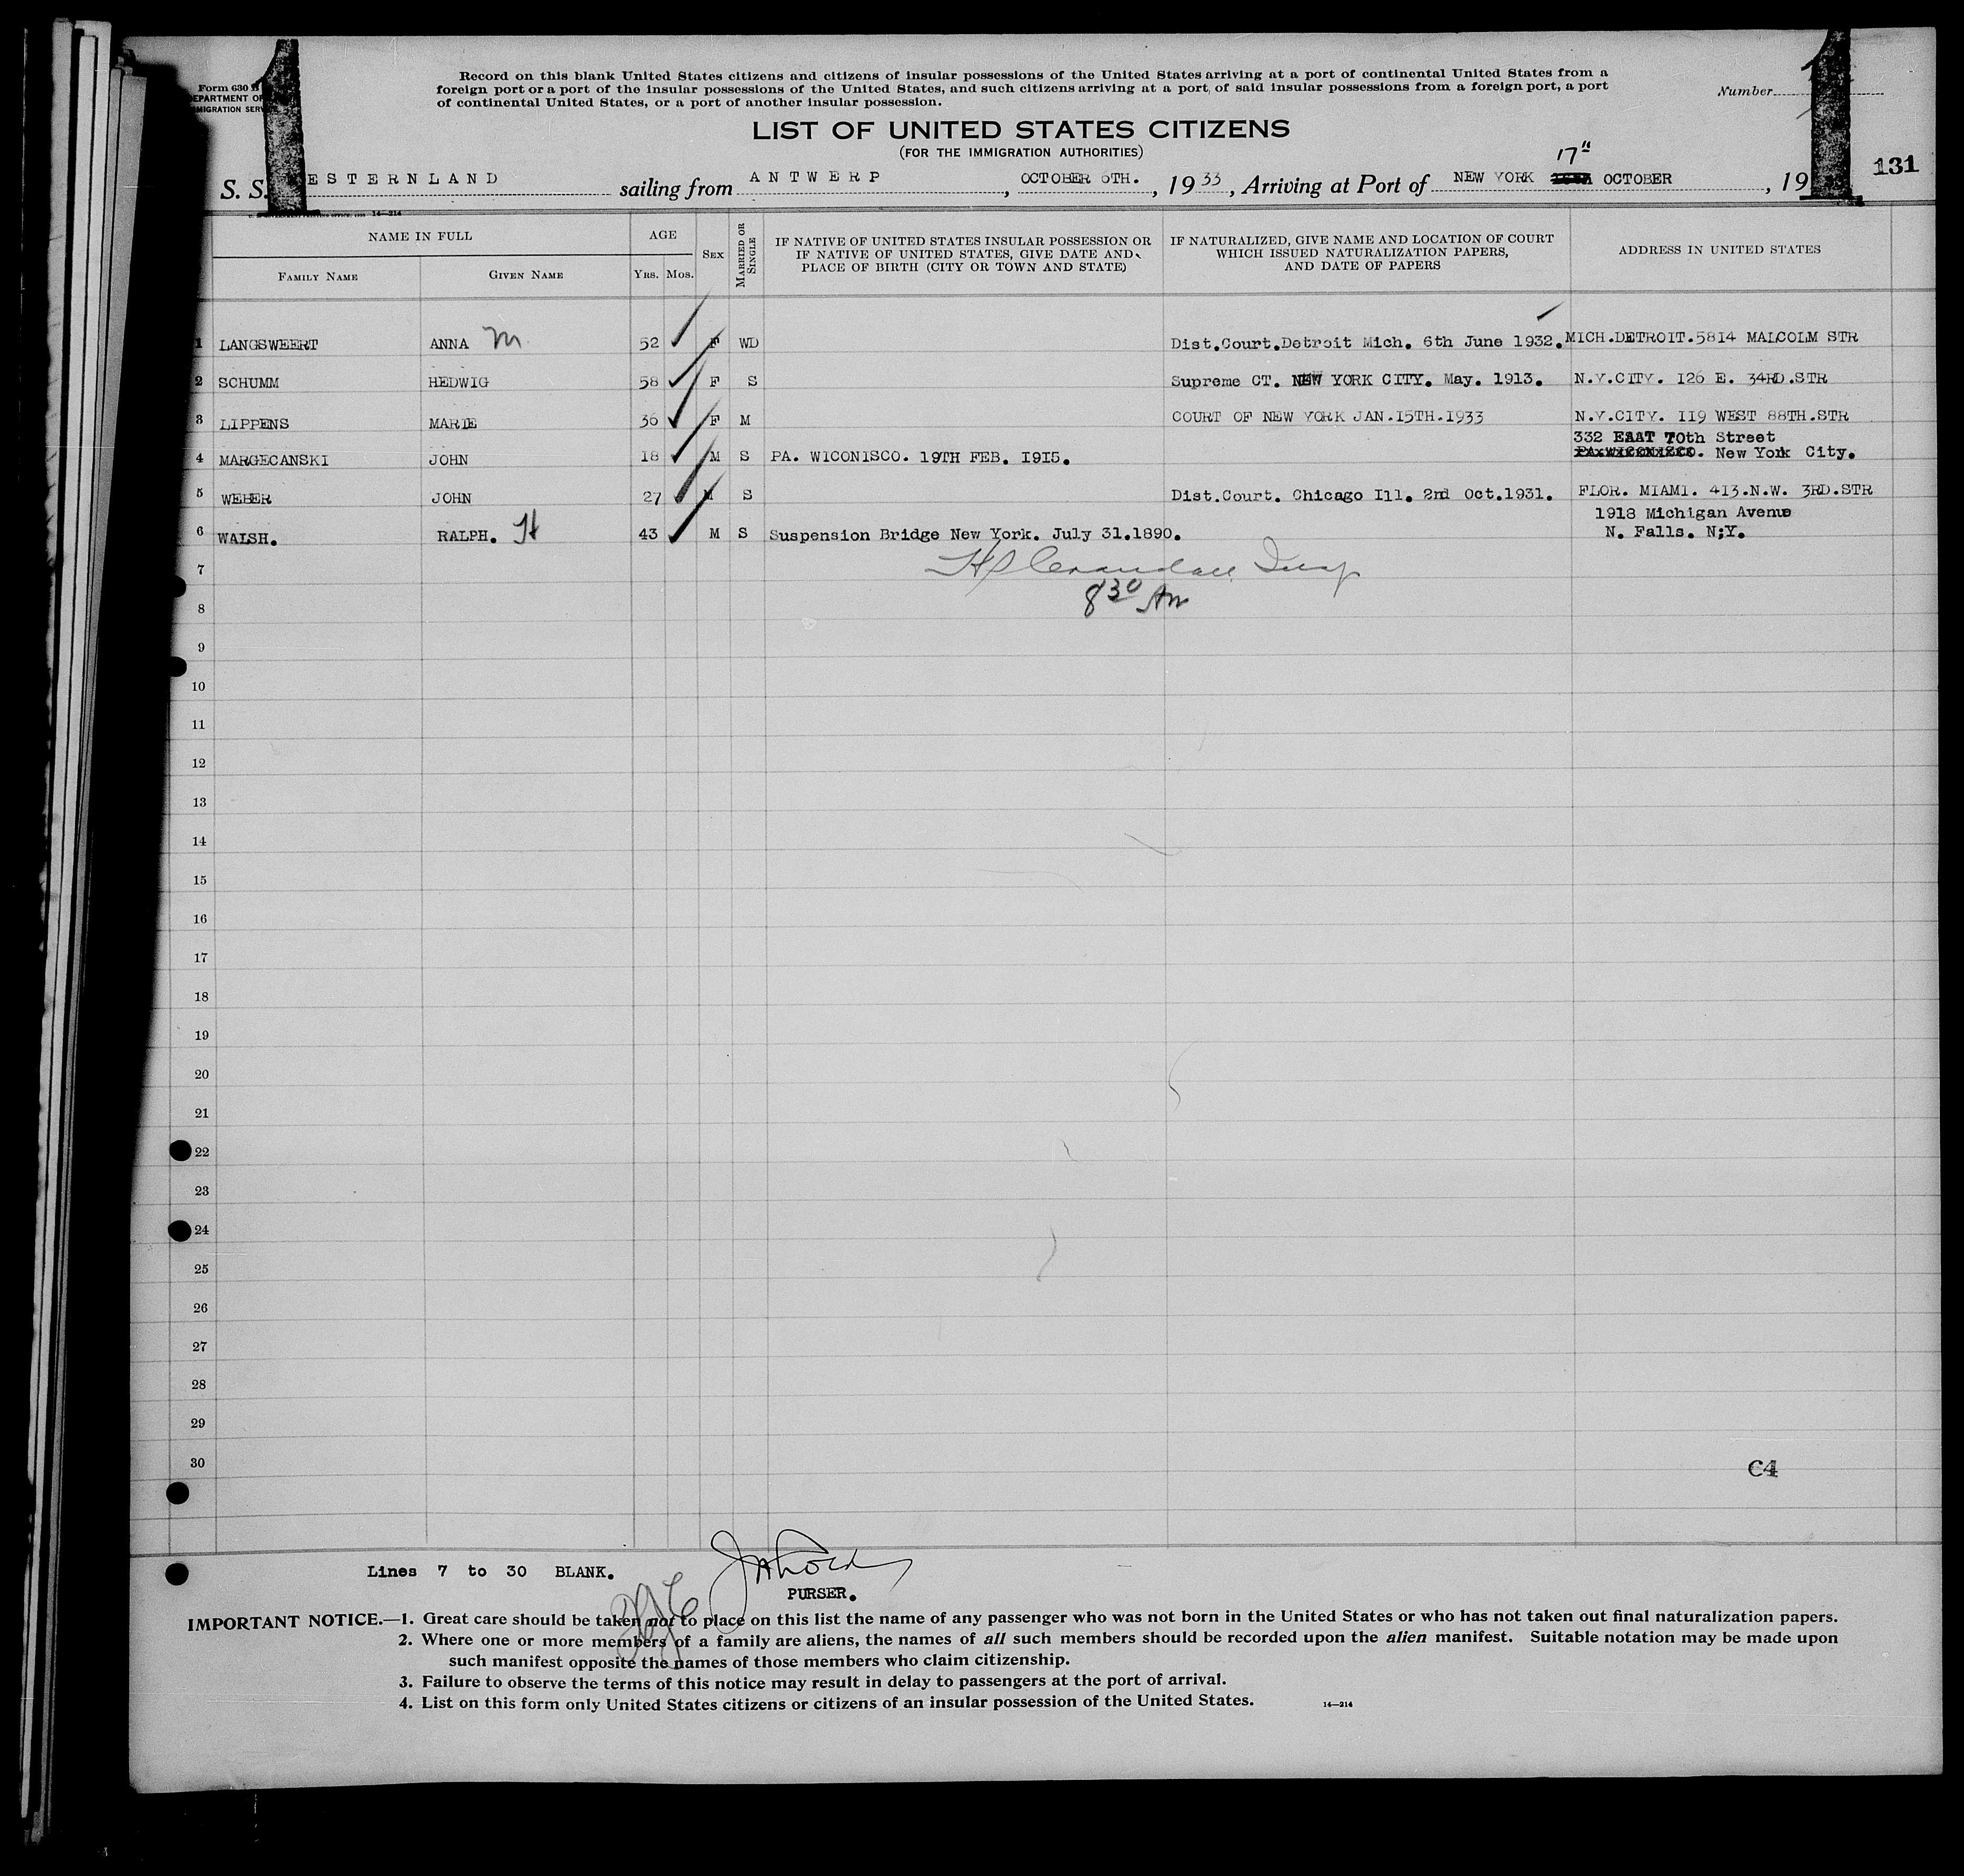 Form 630 B
DEPARTMENT OF
IMMIGRATION SERV
Record on this blank United States citizens and citizens of insular possessions of the United States arriving at a port of continental United States from a
foreign port or a port of the insular possessions of the United States, and such citizens arriving at a port of said insular possessions from a foreign port, a port
of continental United States, or a port of another insular possession.
Number
LIST OF UNITED STATES CITIZENS
(FOR THE IMMIGRATION AUTHORITIES)
17"
131
S. S. ESTERNLAND sailing from ANTWERP, OCTOBER 6TH., 1933, Arriving at Port of NEW YORK OCTOBER, 19
14—214
NAME IN FULL AGE SEX MARRIED OR SINGLE IF NATIVE OF UNITED STATES INSULAR POSSESSION OR IF NATIVE OF UNITED STATES, GIVE DATE AND PLACE OF BIRTH (CITY OR TOWN AND STATE) IF NATURALIZED, GIVE NAME AND LOCATION OF COURT WHICH ISSUED NATURALIZATION PAPERS, AND DATE OF PAPERS ADDRESS IN UNITED STATES
FAMILY NAME GIVEN NAME YRS. MOS.
1 LANGSWEERT ANNA M 52 F WD Dist.Court.Detroit Mich. 6th June 1932. MICH.DETROIT.5814 MALCOLM STR
2 SCHUMM HEDWIG 58 F S Supreme CT. NEW YORK CITY. May. 1913. N.Y.CITY. 126 E. 34RD.STR
3 LIPPENS MARIE 36 F M COURT OF NEW YORK JAN.15TH.1933 N.Y.CITY. 119 WEST 88TH.STR
332 EAAT 70th Street
4 MARGECANSKI JOHN 18 M S PA. WICONISCO. 19TH FEB. 1915. PA.WICONISCO. New York City.
5 WEBER JOHN 27 M S Dist.Court. Chicago Ill. 2nd Oct.1931. FLOR. MIAMI. 413.N.W. 3RD.STR
1918 Michigan Avenue
6 WALSH. RALPH. H 43 M S Suspension Bridge New York. July 31.1890. N. Falls. N;Y.
7 Crandall Insp
8 8 30 Am
9
10
11
12
13
14
15
16
17
18
19
20
21
22
23
24
25
26
27
28
29
30
C4
Lines 7 to 30 BLANK.
PURSER.
IMPORTANT NOTICE.—1. Great care should be taken not to place on this list the name of any passenger who was not born in the United States or who has not taken out final naturalization papers.
2. Where one or more members of a family are aliens, the names of all such members should be recorded upon the alien manifest. Suitable notation may be made upon
such manifest opposite the names of those members who claim citizenship.
3. Failure to observe the terms of this notice may result in delay to passengers at the port of arrival.
4. List on this form only United States citizens or citizens of an insular possession of the United States. 14—214